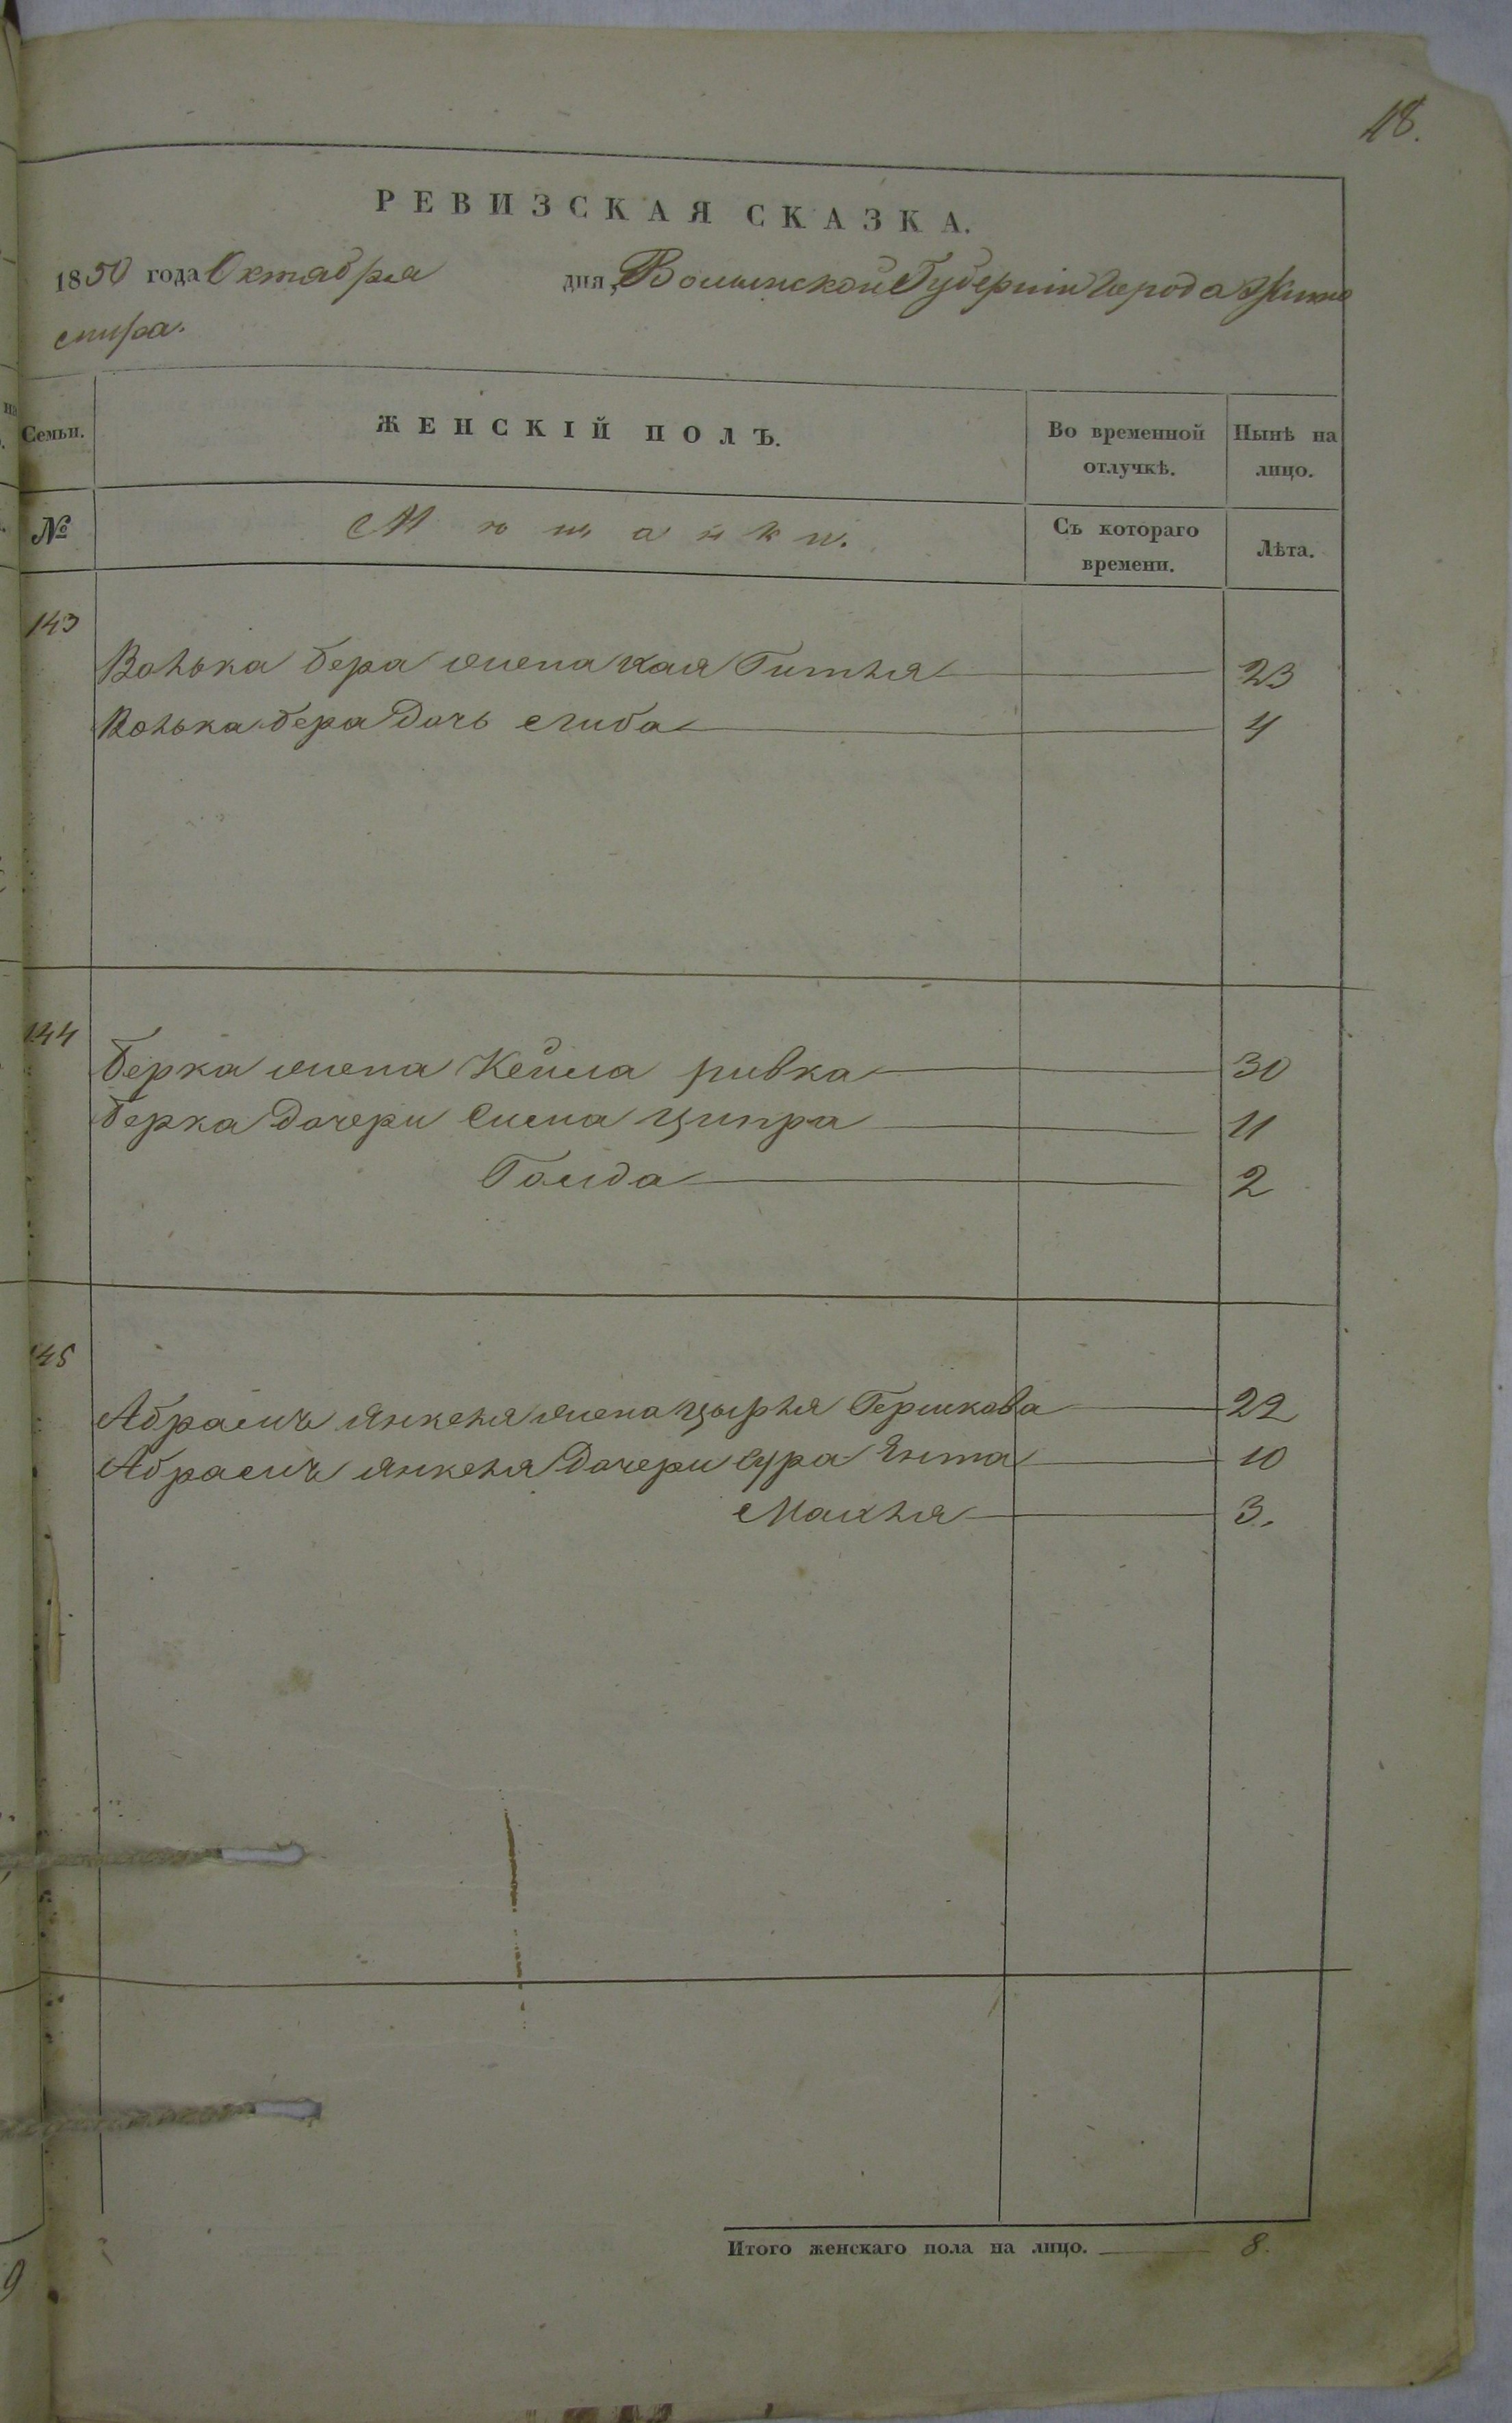 18.
РЕВИЗСКАЯ СКАЗКА.
1850 года Октября дня, Волынской Губерніи Города Жито
мира.
Семьи. ЖЕНСКІЙ ПОЛЪ. Во временной отлучкѣ. Нынѣ на лицо.
№ Мѣщанки. Съ котораго времени. Лѣта.
143
Волька бера жена хая Гитля 23
Волька бера дочь Либа 4
144
берка жена Кейла ривка 30
берка дочери Сима ципра 11
Голда 2
145
Абрамъ Янкеля жена цырля Гершкова 22
Абрамъ Янкеля дочери Сура Ента 10
Махля 3.
Итого женскаго пола на лицо. 8.
9